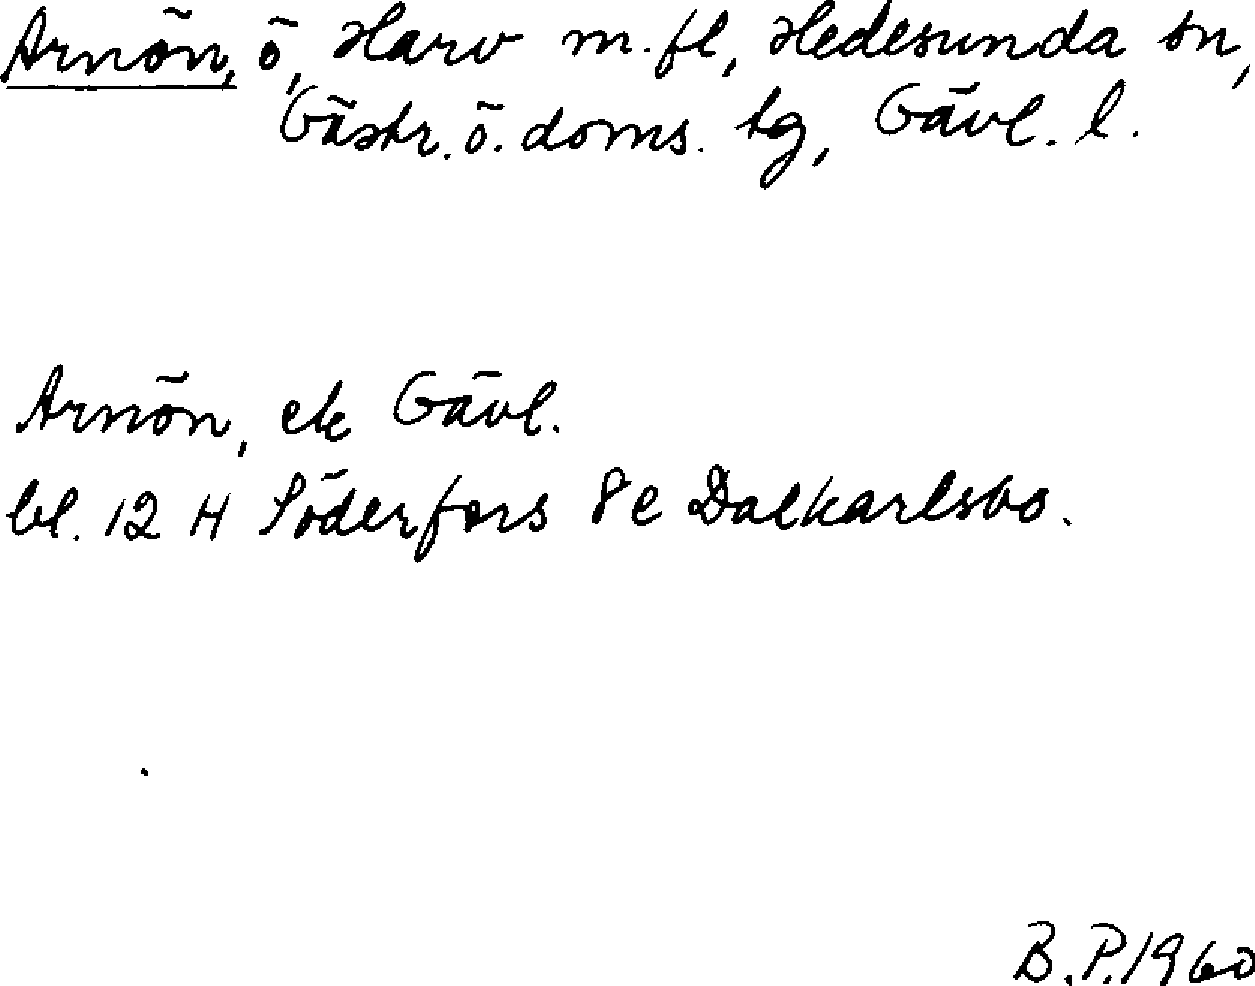 Arnön, ö, Harv m.fl, Hedesunda sn,
Gästr. ö. doms. tg, Gävl. l.
Arnön, ek Gävl.
bl. 12 H Söderfors 8e Dalkarlsbo.
B.P.1960